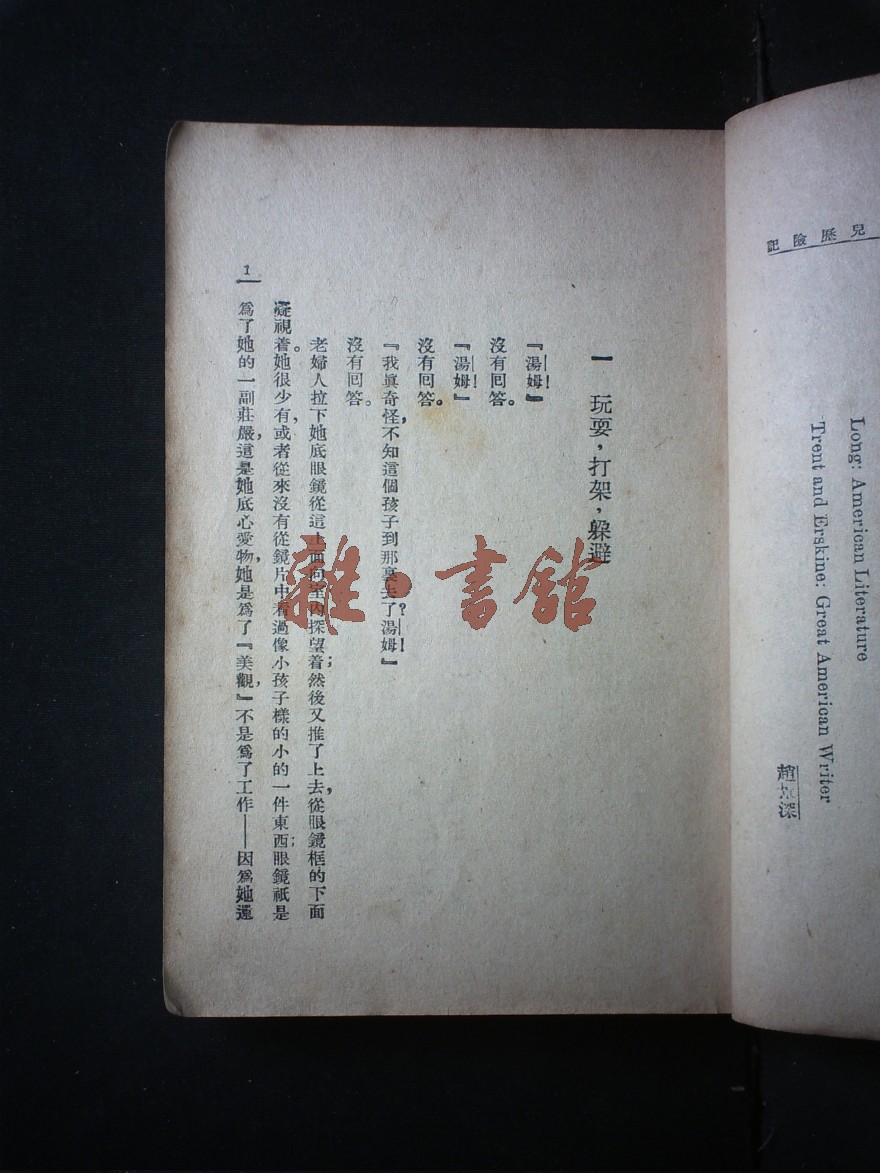 兒歷險記
Long: American Literature
Trent and Erskine: Great American Writer
趙深
一 玩耍，打架，躲避
『湯姆！』
沒有回答。
『湯姆！』
沒有回答。
『我眞奇怪，不知這個孩子到那裏去了？湯姆！』
沒有回答。
老婦人拉下她底眼鏡從這上面向室內探望着；然後又推了上去，從眼鏡框的下面
凝視着。她很少有，或者從來沒有從鏡片中看過像小孩子樣的小的一件東西；眼鏡祇是
爲了她的一副莊嚴，這是她底心愛物，她是爲了『美觀，』不是爲了工作——因爲她還
1
雜·書館